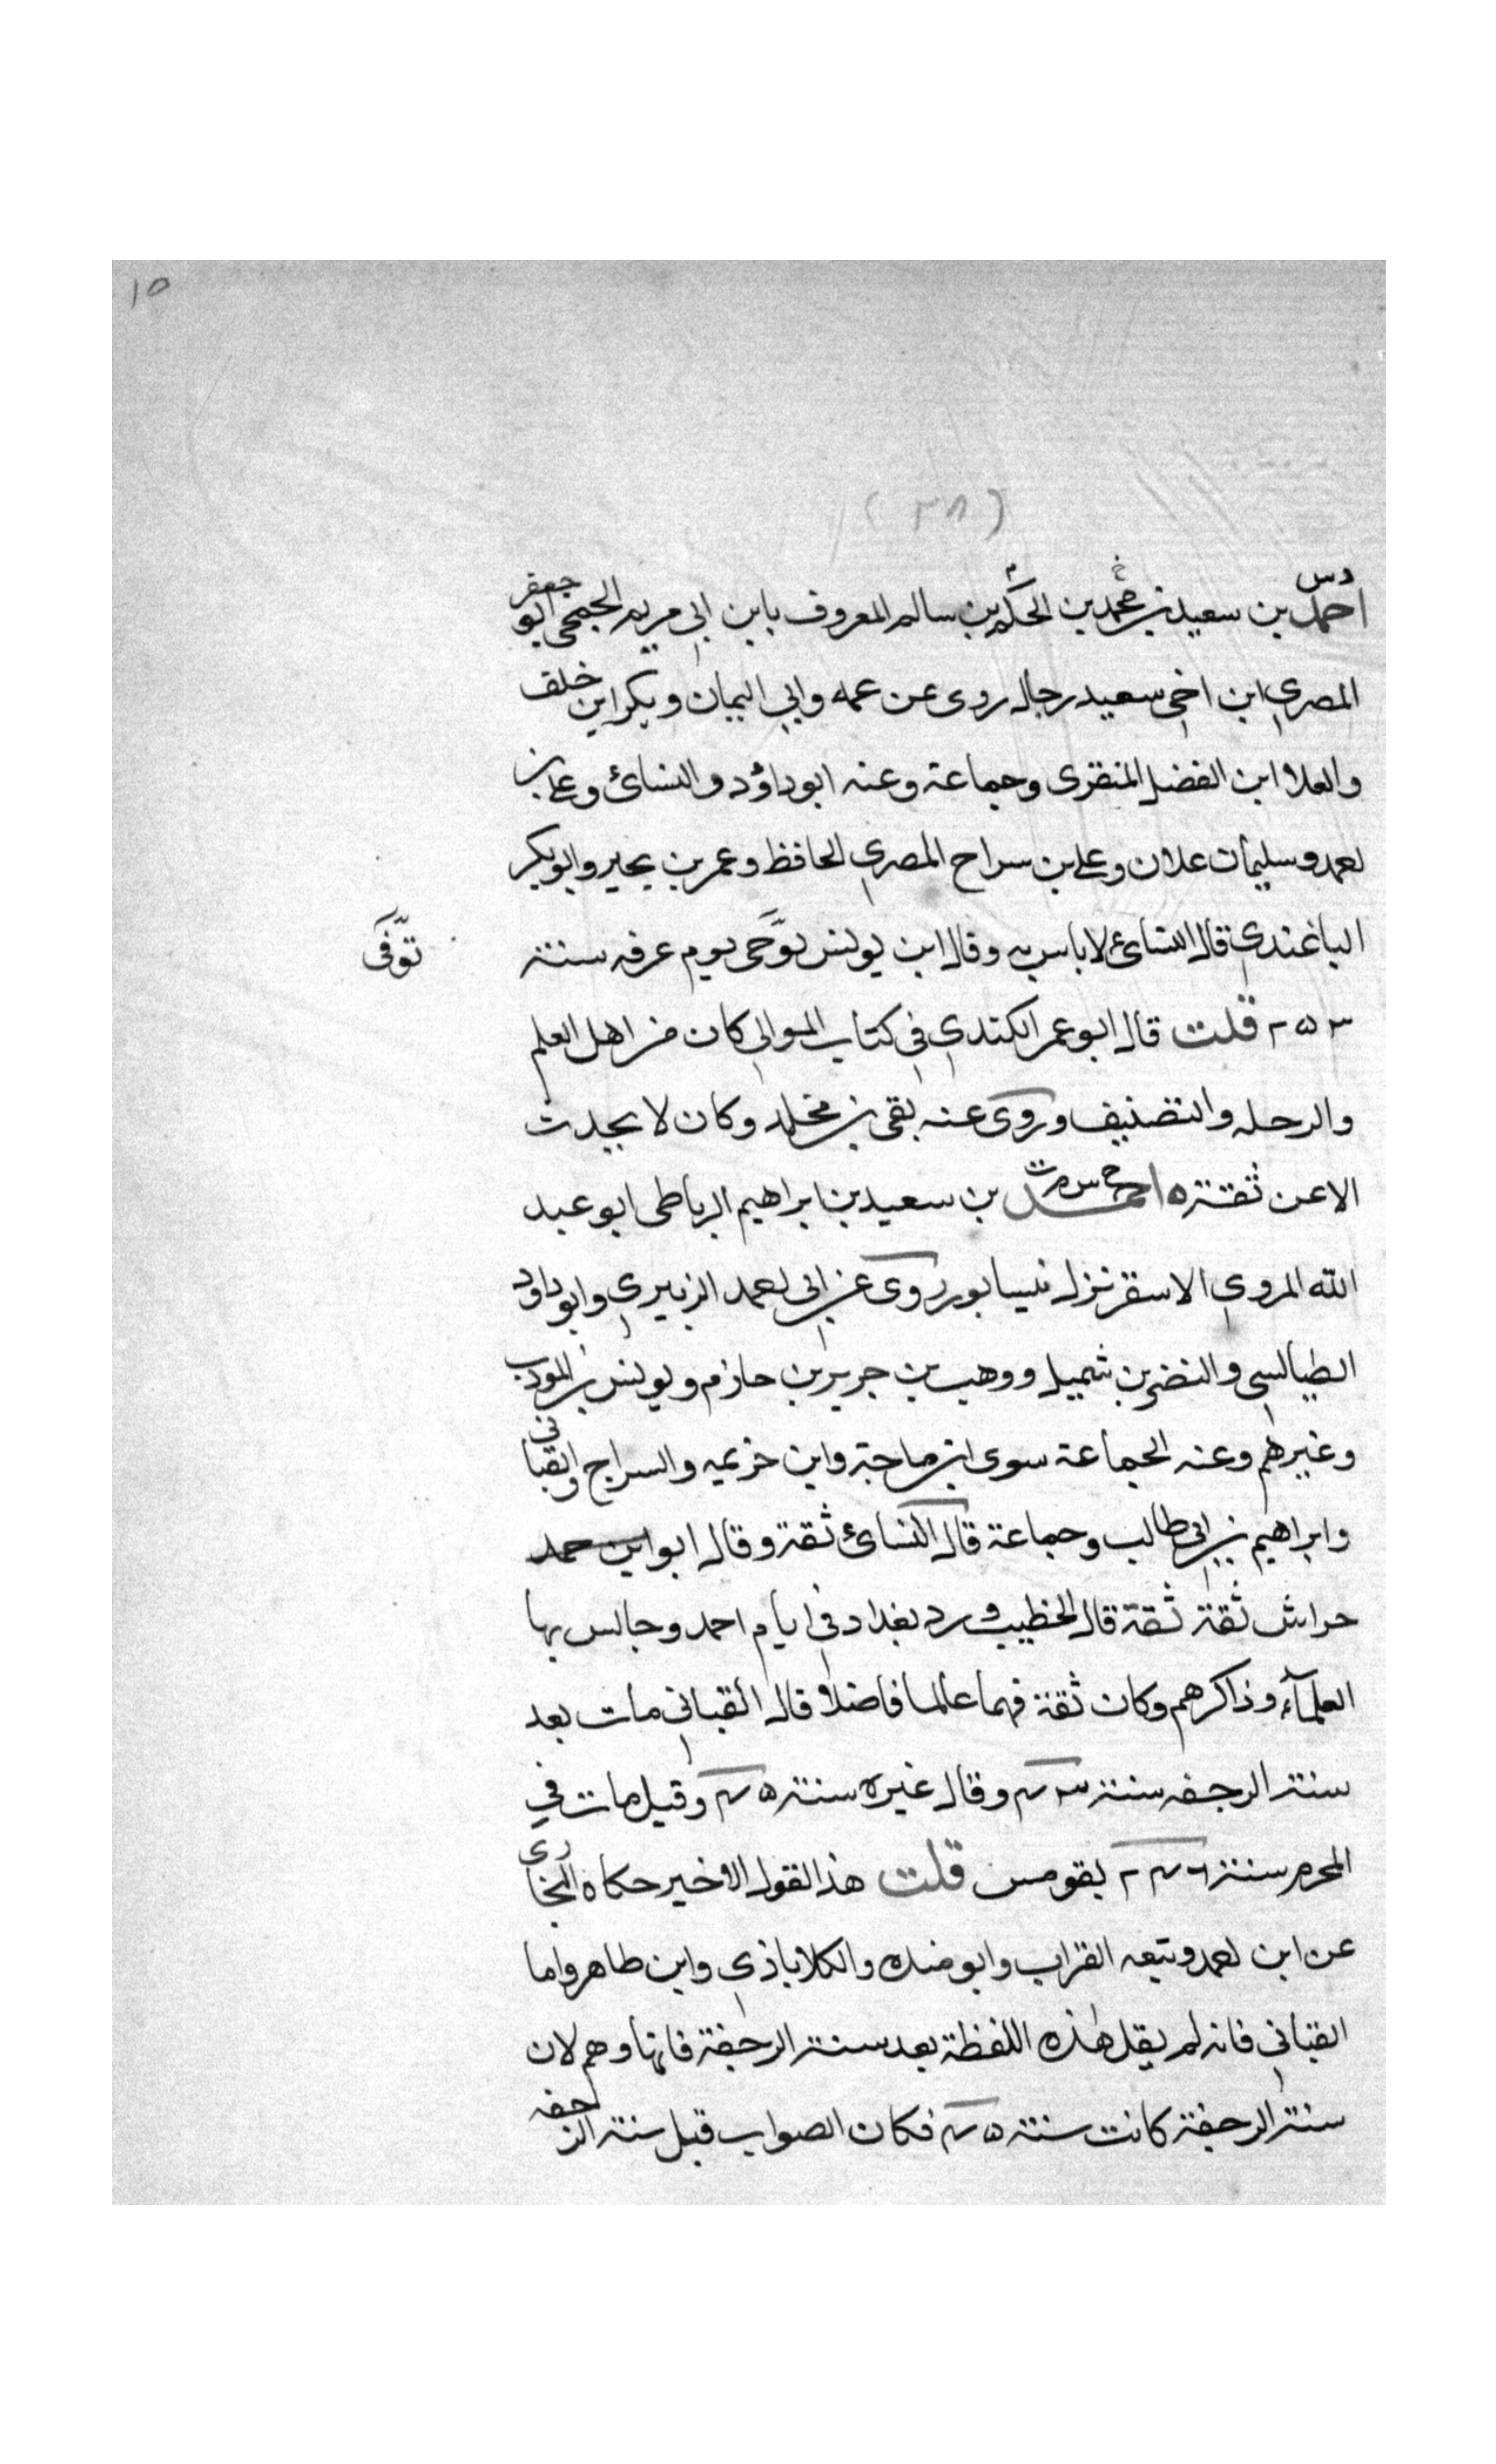 ١٥
(٣٨)
دس
احمد بن سعيد بن محمد بن الحكم بن سالم المعروف بابن ابي مريم الجمحي ابو جعفر
المصري ابن اخي سعيد رجال روى عن عمه وابي اليمان وبكر ابن خلف
والعلا ابن الفضل المنقرى وجماعة وعنه ابو داؤد والنسائ وعلي بن
احمد وسليمان علان وعلي بن سراح المصري الحافظ وعمر بن بحير وابو بكر
الباغندي قال النسائ لا باس به وقال ابن يونس توحى يوم عرفه سنة
توفى
٢٥٣ قلت قال ابو عمر الكندي في كتاب الموالي كان من اهل العلم
والرحله والتصنيف وروى عنه بقى بن مخلد وكان لا يحدث
الا عن ثقة ه احمد بن سعيد بن ابراهيم الرباطى ابو عبد
خ م س ت
الله المروي الاسقر نزل نيسابور روى عن ابي احمد الزبيري وابو داود
الطيالسي والنضر بن شميل ووهب بن جرير بن حازم ويونس بن المودب
وغيرهم وعنه الجماعة سوى ابن ماجة وابن خزيمه والسراج والقباني
وابراهيم بن ابي طالب وجماعة قال النسائ ثقة وقال ابو ابن حمد
حراش ثقة ثقة قال الخطيب ورد بغداد في ايام احمد وجالس بها
العلمآء وذاكرهم وكان ثقة فهما عالما فاضلا وقال القباني مات بعد
سنة الرجفه سنة ٤٣ وقال غيره سنة ٤٥ وقيل مات في
المحرم سنة ٢٤٦ بقومس قلت هذا القول الاخير حكاه البخارى
عن ابن احمد وتبعه القراب وابو منده والكلاباذي وابن طاهر واما
القباني فانه لم يقل هذه اللفظة بعد سنة الرحفة فانها وهم لان
سنة الرحفة كانت سنة ٤٥ فكان الصواب قبل سنة الرحفه